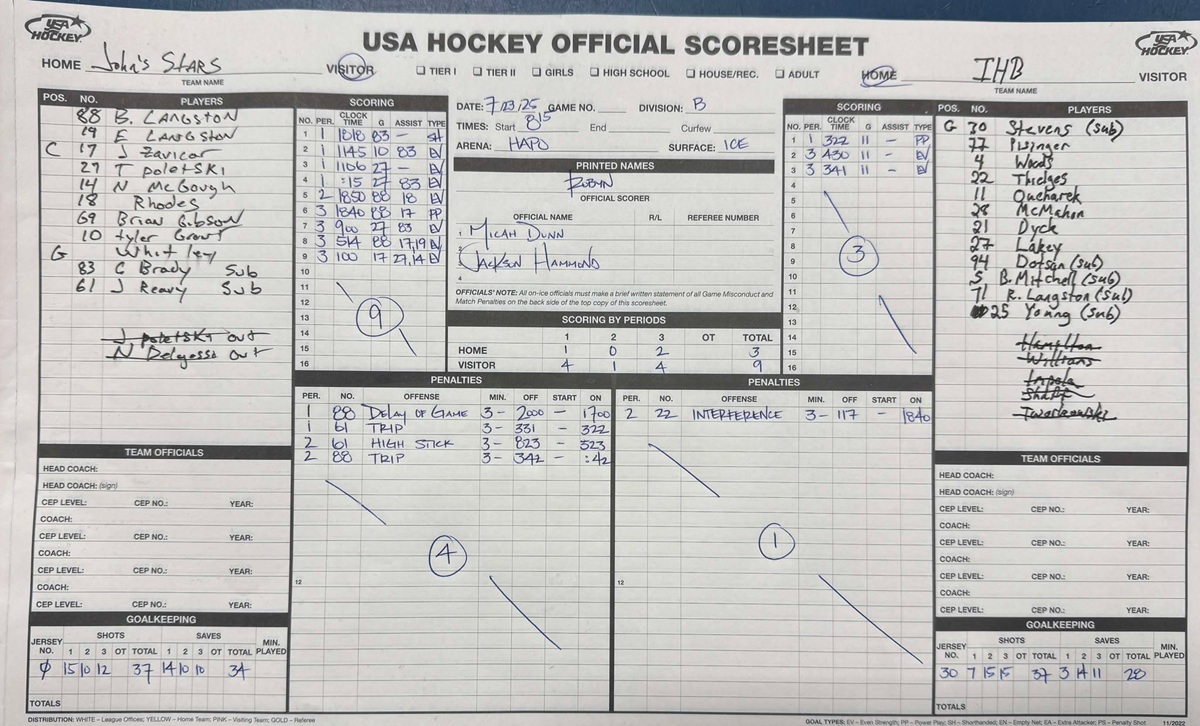 USA HOCKEY
USA HOCKEY OFFICIAL SCORESHEET
USA HOCKEY
HOME John's STARS VISITOR
TEAM NAME
☐ TIER I ☐ TIER II ☐ GIRLS ☐ HIGH SCHOOL ☐ HOUSE/REC. ☐ ADULT
HOME IHB VISITOR
TEAM NAME
POS. NO. PLAYERS
88 B. LANGSTON
19 E LANGSTON
C 17 J Zavicar
27 T poletSKI
14 N McGough
18 Rhodes
69 Brian Gibson
10 Tyler Grout
G Whitley
83 C Brady Sub
61 J Reavy Sub
J poletSKI out
N Delgosso out
SCORING
NO. PER. CLOCK TIME G ASSIST TYPE
1 1 1818 83 - SH
2 1 1145 10 83 EV
3 1 1106 27 - EV
4 1 :15 27 83 EV
5 2 1850 88 18 EV
6 3 1840 88 17 PP
7 3 900 27 83 EV
8 3 514 88 17,19 EV
9 3 100 17 27,14 EV
10
11
12
13
14
15
16
9
DATE: 7/13/25 GAME NO. DIVISION: B
TIMES: Start 815 End Curfew
ARENA: HAPO SURFACE: ICE
PRINTED NAMES
ROBYN
OFFICIAL SCORER
OFFICIAL NAME R/L REFEREE NUMBER
1 MICAH DUNN
2 JACKSON HAMMOND
4
OFFICIALS' NOTE: All on-ice officials must make a brief written statement of all Game Misconduct and
Match Penalties on the back side of the top copy of this scoresheet.
SCORING BY PERIODS
1 2 3 OT TOTAL
HOME 1 0 2 3
VISITOR 4 1 4 9
SCORING
NO. PER. CLOCK TIME G ASSIST TYPE
1 1 322 11 - PP
2 3 430 11 - EV
3 3 341 11 - EV
4
5
6
7
8
9
10
11
12
13
14
15
16
3
POS. NO. PLAYERS
G 30 Stevens (sub)
77 Pisinger
4 Woods
22 Thielges
11 Oucharek
28 McMahon
21 Dyck
27 Lakey
94 Dotson (sub)
5 B. Mitchell (sub)
71 R. Langston (sub)
25 Young (sub)
Hamilton
Williams
Impola
Shaff
PENALTIES
PER. NO. OFFENSE MIN. OFF START ON
1 88 DELAY OF GAME 3- 2000 - 1700
1 61 TRIP 3- 331 - 322
2 61 HIGH STICK 3- 823 - 523
2 88 TRIP 3- 342 - :42
4
12
PENALTIES
PER. NO. OFFENSE MIN. OFF START ON
2 22 INTERFERENCE 3- 117 - 1840
1
12
TEAM OFFICIALS
HEAD COACH:
HEAD COACH: (sign)
CEP LEVEL: CEP NO.: YEAR:
COACH:
CEP LEVEL: CEP NO.: YEAR:
COACH:
CEP LEVEL: CEP NO.: YEAR:
COACH:
CEP LEVEL: CEP NO.: YEAR:
GOALKEEPING
JERSEY NO. SHOTS SAVES MIN. PLAYED
1 2 3 OT TOTAL 1 2 3 OT TOTAL
Ø 15 10 12 37 14 10 10 34
TOTALS
TEAM OFFICIALS
HEAD COACH:
HEAD COACH: (sign)
CEP LEVEL: CEP NO.: YEAR:
COACH:
CEP LEVEL: CEP NO.: YEAR:
COACH:
CEP LEVEL: CEP NO.: YEAR:
COACH:
CEP LEVEL: CEP NO.: YEAR:
GOALKEEPING
JERSEY NO. SHOTS SAVES MIN. PLAYED
1 2 3 OT TOTAL 1 2 3 OT TOTAL
30 7 15 15 37 3 14 11 28
TOTALS
DISTRIBUTION: WHITE – League Offices; YELLOW – Home Team; PINK – Visiting Team; GOLD – Referee
GOAL TYPES: EV – Even Strength; PP – Power Play; SH – Shorthanded; EN – Empty Net; EA – Extra Attacker; PS – Penalty Shot 11/2022